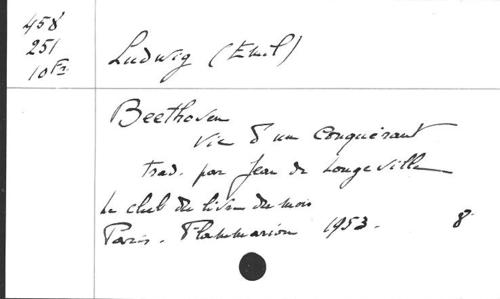 458
251
10 Fr
Ludwig (Emil)
Beethoven
vie d'un conquérant
trad. par Jean de Longeville
Le club du livre du mois
Paris. Flammarion 1953. 8°